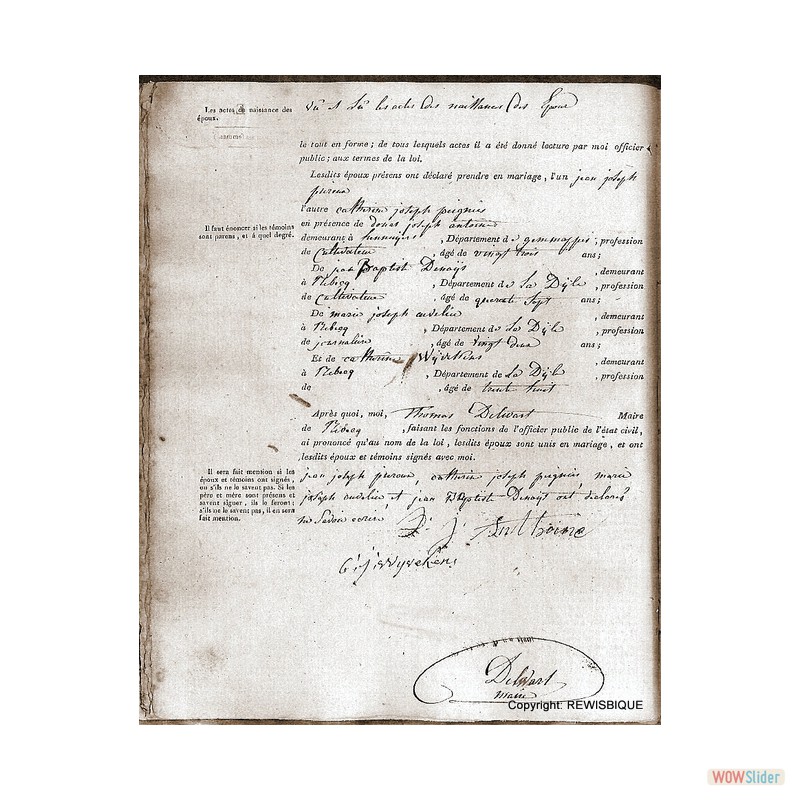 Les actes de naissance des
époux.
vu et lu les actes des naissances des Epoux
le tout en forme; de tous lesquels actes il a été donné lecture par moi officier
public; aux termes de la loi.
Lesdits époux présens ont déclaré prendre en mariage, l'un jean joseph
piereux
l'autre catherine joseph peignies
Il faut énoncer si les témoins
sont parens, et à quel degré.
en présence de joseph antoine
demeurant à hennuyer, Département de gemmappes, profession
de Cultivateur, âgé de vingt trois ans;
De jean Baptist Denayt, demeurant
à Rebecq, Département de La Dyle, profession
de Cultivateur, âgé de quarente Sept ans;
De marie joseph, demeurant
à Rebecq, Département de La Dyle, profession
de journaliere, âgé de vingt deux ans;
Et de catherine Wyvekens, demeurant
à Rebecq, Département de La Dyle, profession
de, âgé de trente huit
Après quoi, moi, Thomas Delwart Maire
de Rebecq, faisant les fonctions de l'officier public de l'état civil,
ai prononcé qu'au nom de la loi, lesdits époux sont unis en mariage, et ont
lesdits époux et témoins signés avec moi.
Il sera fait mention si les
époux et témoins ont signés,
ou s'ils ne le savent pas. Si les
père et mère sont présens et
savent signer, ils le feront;
s'ils ne le savent pas, il en sera
fait mention.
jean joseph piereux, catherine joseph peignies marie
joseph et jean Baptist Denayt ont déclarés
ne Savoir ecrire D. J. Anthoine
C: j: Wyvekens
Delwart
maire
Copyright: REWISBIQUE
WOWSlider